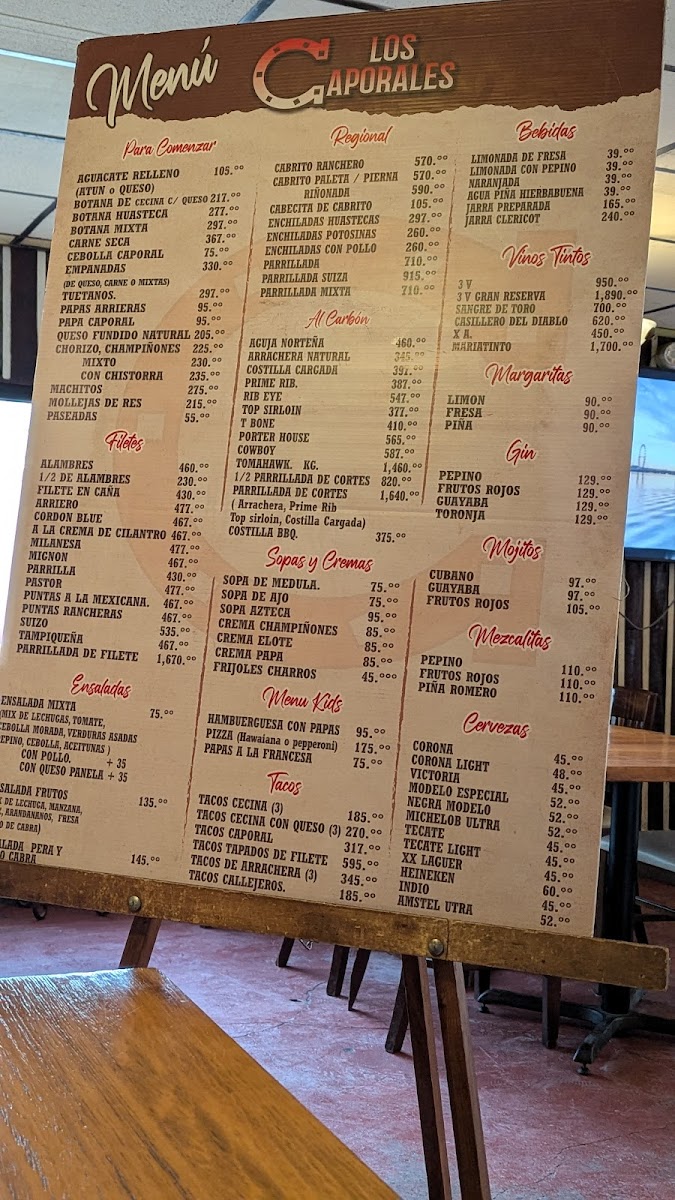 Menú
LOS
CAPORALES
Para Comenzar
AGUACATE RELLENO 105.00
(ATUN o QUESO)
BOTANA DE CECINA C/ QUESO 217.00
BOTANA HUASTECA 277.00
BOTANA MIXTA 297.00
CARNE SECA 367.00
CEBOLLA CAPORAL 75.00
EMPANADAS 330.00
(DE QUESO, CARNE O MIXTAS)
TUETANOS. 297.00
PAPAS ARRIERAS 95.00
PAPA CAPORAL 95.00
QUESO FUNDIDO NATURAL 205.00
CHORIZO, CHAMPIÑONES 225.00
MIXTO 230.00
CON CHISTORRA 235.00
MACHITOS 275.00
MOLLEJAS DE RES 215.00
PASEADAS 55.00
Filetes
ALAMBRES 460.00
1/2 DE ALAMBRES 230.00
FILETE EN CAÑA 430.00
ARRIERO 477.00
CORDON BLUE 467.00
A LA CREMA DE CILANTRO 467.00
MILANESA 477.00
MIGNON 467.00
PARRILLA 430.00
PASTOR 477.00
PUNTAS A LA MEXICANA. 467.00
PUNTAS RANCHERAS 467.00
SUIZO 535.00
TAMPIQUEÑA 467.00
PARRILLADA DE FILETE 1,670.00
Ensaladas
ENSALADA MIXTA 75.00
(MIX DE LECHUGAS, TOMATE,
CEBOLLA MORADA, VERDURAS ASADAS
EPINO, CEBOLLA, ACEITUNAS )
CON POLLO. + 35
CON QUESO PANELA + 35
SALADA FRUTOS 135.00
X DE LECHUGA, MANZANA,
, ARANDANANOS, FRESA
O DE CABRA)
ALADA PERA Y
O CABRA 145.00
Regional
CABRITO RANCHERO 570.00
CABRITO PALETA / PIERNA 570.00
RIÑONADA 590.00
CABECITA DE CABRITO 105.00
ENCHILADAS HUASTECAS 297.00
ENCHILADAS POTOSINAS 260.00
ENCHILADAS CON POLLO 260.00
PARRILLADA 710.00
PARRILLADA SUIZA 915.00
PARRILLADA MIXTA 710.00
Al Carbón
AGUJA NORTEÑA 460.00
ARRACHERA NATURAL 345.00
COSTILLA CARGADA 397.00
PRIME RIB. 387.00
RIB EYE 547.00
TOP SIRLOIN 377.00
T BONE 410.00
PORTER HOUSE 565.00
COWBOY 587.00
TOMAHAWK. KG. 1,460.00
1/2 PARRILLADA DE CORTES 820.00
PARRILLADA DE CORTES 1,640.00
( Arrachera, Prime Rib
Top sirloin, Costilla Cargada)
COSTILLA BBQ. 375.00
Sopas y Cremas
SOPA DE MEDULA. 75.00
SOPA DE AJO 75.00
SOPA AZTECA 95.00
CREMA CHAMPIÑONES 85.00
CREMA ELOTE 85.00
CREMA PAPA 85.00
FRIJOLES CHARROS 45.000
Menu Kids
HAMBUERGUESA CON PAPAS 95.00
PIZZA (Hawaiana o pepperoni) 175.00
PAPAS A LA FRANCESA 75.00
Tacos
TACOS CECINA (3) 185.00
TACOS CECINA CON QUESO (3) 270.00
TACOS CAPORAL 317.00
TACOS TAPADOS DE FILETE 595.00
TACOS DE ARRACHERA (3) 345.00
TACOS CALLEJEROS. 185.00
Bebidas
LIMONADA DE FRESA 39.00
LIMONADA CON PEPINO 39.00
NARANJADA 39.00
AGUA PIÑA HIERBABUENA 39.00
JARRA PREPARADA 165.00
JARRA CLERICOT 240.00
Vinos Tintos
3 V 950.00
3 V GRAN RESERVA 1,890.00
SANGRE DE TORO 700.00
CASILLERO DEL DIABLO 620.00
X A. 450.00
MARIATINTO 1,700.00
Margaritas
LIMON 90.00
FRESA 90.00
PIÑA 90.00
Gin
PEPINO 129.00
FRUTOS ROJOS 129.00
GUAYABA 129.00
TORONJA 129.00
Mojitos
CUBANO 97.00
GUAYABA 97.00
FRUTOS ROJOS 105.00
Mezcalitas
PEPINO 110.00
FRUTOS ROJOS 110.00
PIÑA ROMERO 110.00
Cervezas
CORONA 45.00
CORONA LIGHT 48.00
VICTORIA 45.00
MODELO ESPECIAL 52.00
NEGRA MODELO 52.00
MICHELOB ULTRA 52.00
TECATE 45.00
TECATE LIGHT 45.00
XX LAGUER 45.00
HEINEKEN 60.00
INDIO 45.00
AMSTEL UTRA 52.00